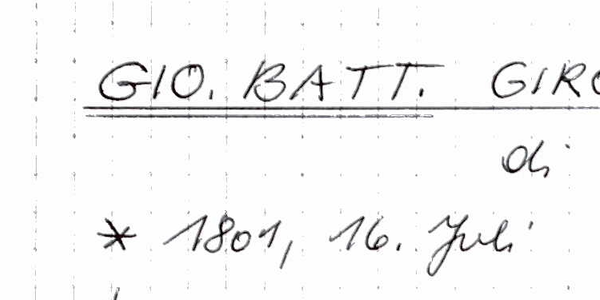 GIO. BATT. GIRO
di
* 1801, 16. Juli